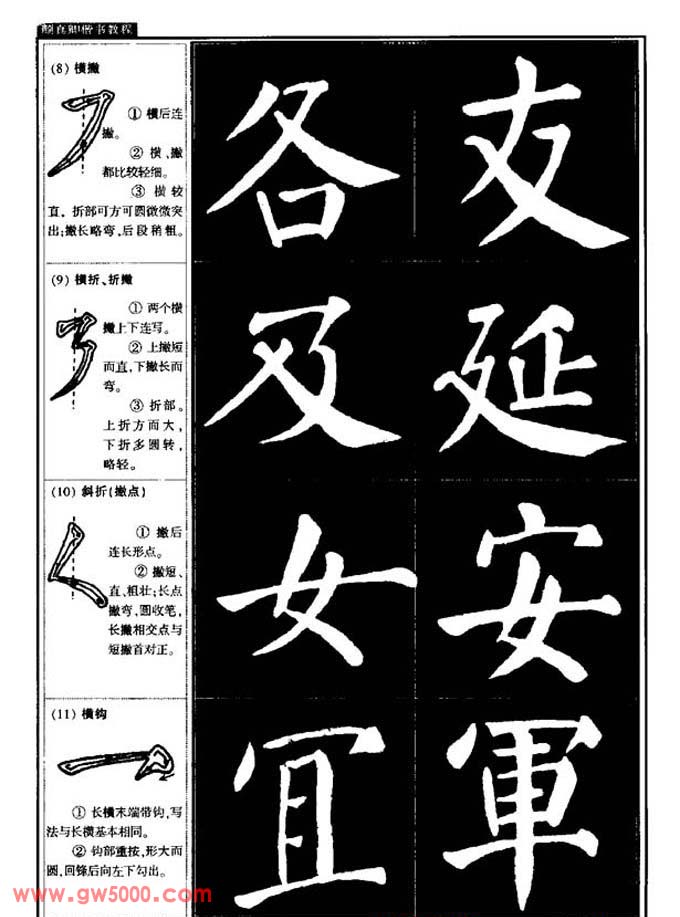 颜真卿楷书教程
(8) 横撇
① 横后连
撇。
② 横、撇
都比较轻细。
③ 横较
直，折部可方可圆微微突
出;撇长略弯,后段稍粗。
各 支
(9) 横折、折撇
① 两个横
撇上下连写。
② 上撇短
而直,下撇长而
弯。
③ 折部。
上折方而大，
下折多圆转，
略轻。
及 延
(10) 斜折(撇点)
① 撇后
连长形点。
② 撇短、
直、粗壮;长点
撇弯,圆收笔,
长撇相交点与
短撇首对正。
女 安
(11) 横钩
① 长横末端带钩,写
法与长横基本相同。
② 钩部重按,形大而
圆,回锋后向左下勾出。
冝 軍
www.gw5000.com